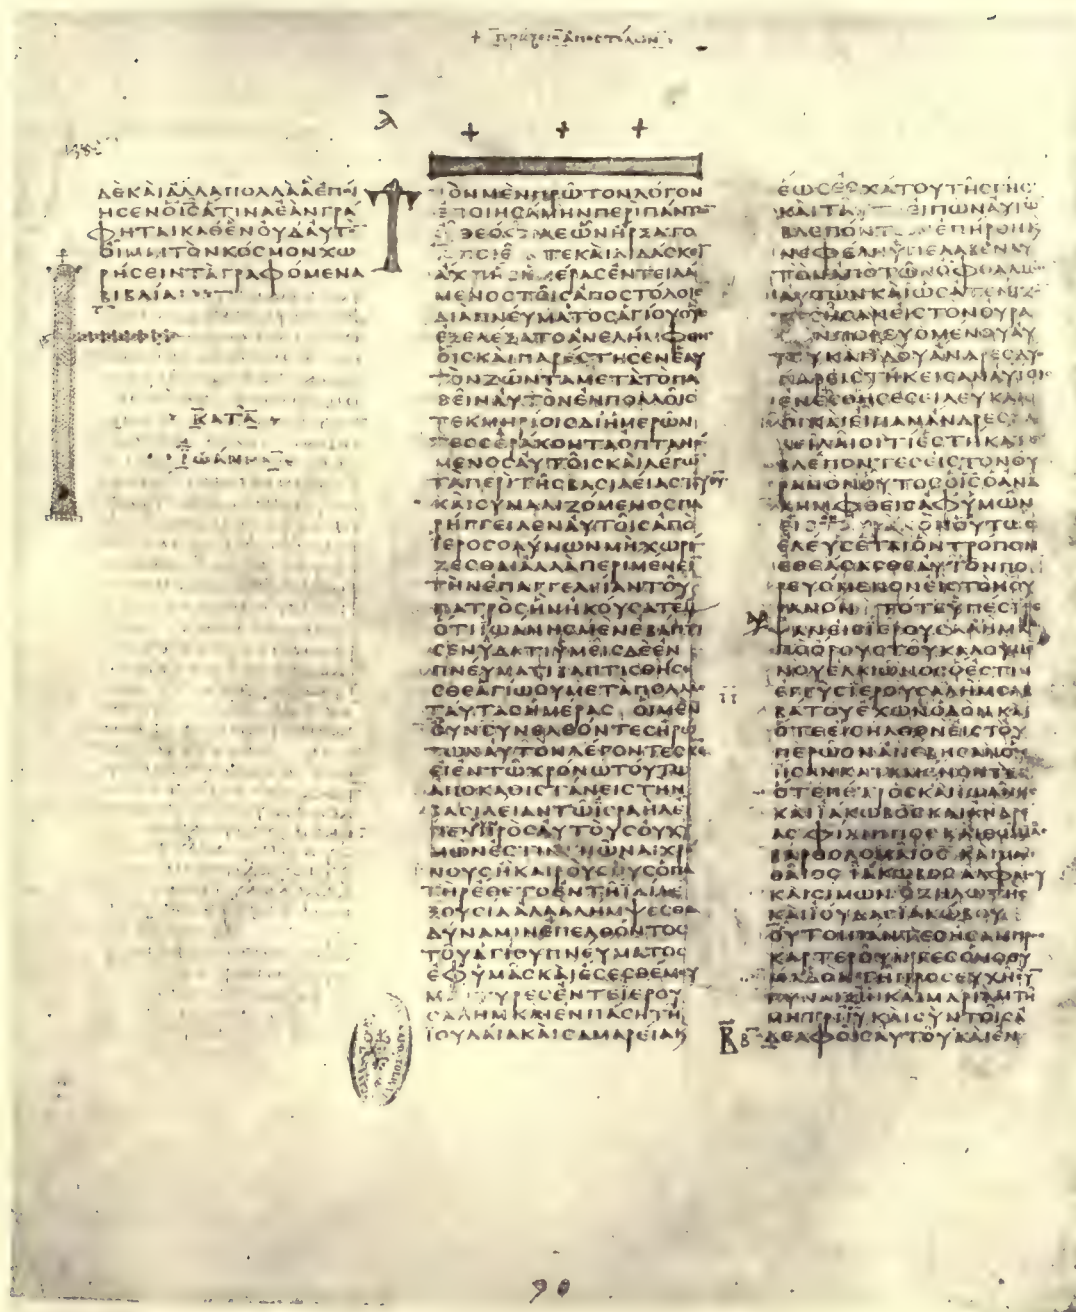 + ΠΡΑΞΕΙϹ ΑΠΟϹΤΟΛΩΝ
ΔΕΚΑΙΑΛΛΑΠΟΛΛΑΑΕΠΟΙ
ΗϹΕΝΟΙϹΑΤΙΝΑΕΑΝΓΡΑ
ΦΗΤΑΙΚΑΘΕΝΟΥΔΑΥΤΟ
ΟΙΜΑΙΤΟΝΚΟϹΜΟΝΧΩ
ΡΗϹΕΙΝΤΑΓΡΑΦΟΜΕΝΑ
ΒΙΒΛΙΑ
ΚΑΤΑ
ΙΩΑΝΝΗΝ
Α
ΤΟΝΜΕΝΠΡΩΤΟΝΛΟΓΟΝ
ΕΠΟΙΗϹΑΜΗΝΠΕΡΙΠΑΝΤΩ
ΩΘΕΟΦΙΛΕΩΝΗΡΞΑΤΟ
ΙϹΠΟΙΕΙΝΤΕΚΑΙΔΙΔΑϹΚΕΙ
ΑΧΡΙΗϹΗΜΕΡΑϹΕΝΤΕΙΛΑ
ΜΕΝΟϹΤΟΙϹΑΠΟϹΤΟΛΟΙϹ
ΔΙΑΠΝΕΥΜΑΤΟϹΑΓΙΟΥΟΥϹ
ΕΞΕΛΕΞΑΤΟΑΝΕΛΗΜΦΘΗ
ΟΙϹΚΑΙΠΑΡΕϹΤΗϹΕΝΕΑΥ
ΤΟΝΖΩΝΤΑΜΕΤΑΤΟΠΑ
ΘΕΙΝΑΥΤΟΝΕΝΠΟΛΛΟΙϹ
ΤΕΚΜΗΡΙΟΙϹΔΙΗΜΕΡΩΝ
ΤΕϹϹΕΡΑΚΟΝΤΑΟΠΤΑΝΟ
ΜΕΝΟϹΑΥΤΟΙϹΚΑΙΛΕΓΩ
ΤΑΠΕΡΙΤΗϹΒΑϹΙΛΕΙΑϹΤΟΥΘΥ
ΚΑΙϹΥΝΑΛΙΖΟΜΕΝΟϹΠΑ
ΡΗΓΓΕΙΛΕΝΑΥΤΟΙϹΑΠΟ
ΙΕΡΟϹΟΛΥΜΩΝΜΗΧΩΡΙ
ΖΕϹΘΑΙΑΛΛΑΠΕΡΙΜΕΝΕΙ
ΤΗΝΕΠΑΓΓΕΛΙΑΝΤΟΥ
ΠΑΤΡΟϹΗΝΗΚΟΥϹΑΤΕΜΟΥ
ΟΤΙΙΩΑΝΗϹΜΕΝΕΒΑΠΤΙ
ϹΕΝΥΔΑΤΙΥΜΕΙϹΔΕΕΝ
ΠΝΕΥΜΑΤΙΒΑΠΤΙϹΘΗϹΕ
ϹΘΕΑΓΙΩΟΥΜΕΤΑΠΟΛΛΑϹ
ΤΑΥΤΑϹΗΜΕΡΑϹ ΟΙΜΕΝ
ΟΥΝϹΥΝΕΛΘΟΝΤΕϹΗΡΩ
ΤΩΝΑΥΤΟΝΛΕΓΟΝΤΕϹΚΕ
ΕΙΕΝΤΩΧΡΟΝΩΤΟΥΤΩ
ΑΠΟΚΑΘΙϹΤΑΝΕΙϹΤΗΝ
ΒΑϹΙΛΕΙΑΝΤΩΙϹΡΑΗΛΕΙ
ΠΕΝΠΡΟϹΑΥΤΟΥϹΟΥΧΥ
ΜΩΝΕϹΤΙΝΓΝΩΝΑΙΧΡΟ
ΝΟΥϹΗΚΑΙΡΟΥϹΟΥϹΟΠΑ
ΤΗΡΕΘΕΤΟΕΝΤΗΙΔΙΑΕ
ΞΟΥϹΙΑΑΛΛΑΛΗΜΨΕϹΘΕ
ΔΥΝΑΜΙΝΕΠΕΛΘΟΝΤΟϹ
ΤΟΥΑΓΙΟΥΠΝΕΥΜΑΤΟϹ
ΕΦΥΜΑϹΚΑΙΕϹΕϹΘΕΜΟΥ
ΜΑΡΤΥΡΕϹΕΝΤΕΙΕΡΟΥ
ϹΑΛΗΜΚΑΙΕΝΠΑϹΗΤΗ
ΙΟΥΔΑΙΑΚΑΙϹΑΜΑΡΕΙΑΚ
ΕΩϹΕϹΧΑΤΟΥΤΗϹΓΗϹ
ΚΑΙΤΑΥΤΑΕΙΠΩΝΑΥΤΩ
ΒΛΕΠΟΝΤΩΝΕΠΗΡΘΗΚ
ΝΕΦΕΛΗΥΠΕΛΑΒΕΝΑΥ
ΤΟΝΑΠΟΤΩΝΟΦΘΑΛΜΩ
ΑΥΤΩΝΚΑΙΩϹΑΤΕΝΙΖΟ
ΤΕϹΗϹΑΝΕΙϹΤΟΝΟΥΡΑ
ΝΟΝΠΟΡΕΥΟΜΕΝΟΥΑΥ
ΤΟΥΚΑΙΙΔΟΥΑΝΔΡΕϹΔΥΟ
ΠΑΡΕΙϹΤΗΚΕΙϹΑΝΑΥΤΟΙϹ
ΕΝΕϹΘΗϹΕϹΙΛΕΥΚΑΙϹ
ΟΙΚΑΙΕΙΠΑΝΑΝΔΡΕϹΓΑ
ΛΕΙΛΑΙΟΙΤΙΕϹΤΗΚΑΤΕ
ΒΛΕΠΟΝΤΕϹΕΙϹΤΟΝΟΥ
ΡΑΝΟΝΟΥΤΟϹΟΙϹΟΑΝΑ
ΛΗΜΦΘΕΙϹΑΦΥΜΩΝ
ΕΙϹΤΟΝΟΥΡΑΝΟΝΟΥΤΩϹ
ΕΛΕΥϹΕΤΑΙΟΝΤΡΟΠΟΝ
ΕΘΕΑϹΑϹΘΕΑΥΤΟΝΠΟ
ΡΕΥΟΜΕΝΟΝΕΙϹΤΟΝΟΥ
ΡΑΝΟΝ ΤΟΤΕΥΠΕϹΤΡΕ
ΨΑΝΕΙϹΙΕΡΟΥϹΑΛΗΜΑ
ΠΟΟΡΟΥϹΤΟΥΚΑΛΟΥΜΕ
ΝΟΥΕΛΑΙΩΝΟϹΟΕϹΤΙΝ
ΕΓΓΥϹΙΕΡΟΥϹΑΛΗΜϹΑΒ
ΒΑΤΟΥΕΧΩΝΟΔΟΝΚΑΙ
ΟΤΕΕΙϹΗΛΘΟΝΕΙϹΤΟΥ
ΠΕΡΩΟΝΑΝΕΒΗϹΑΝΟΥ
ΗϹΑΝΚΑΤΑΜΕΝΟΝΤΕϹ
ΟΤΕΠΕΤΡΟϹΚΑΙΙΩΑΝΗϹ
ΚΑΙΙΑΚΩΒΟϹΚΑΙΑΝΔΡΕ
ΑϹΦΙΛΙΠΠΟϹΚΑΙΘΩΜΑϹ
ΒΑΡΘΟΛΟΜΑΙΟϹΚΑΙΜΑΘ
ΘΑΙΟϹΙΑΚΩΒΟϹΑΛΦΑΙΟΥ
ΚΑΙϹΙΜΩΝΟΖΗΛΩΤΗϹ
ΚΑΙΙΟΥΔΑϹΙΑΚΩΒΟΥ
ΟΥΤΟΙΠΑΝΤΕϹΗϹΑΝΠΡΟϹ
ΚΑΡΤΕΡΟΥΝΤΕϹΟΜΟΘΥ
ΜΑΔΟΝΤΗΠΡΟϹΕΥΧΗϹΥ
ΓΥΝΑΙΞΙΝΚΑΙΜΑΡΙΑΜΤΗ
ΜΗΤΡΙΙΥΚΑΙϹΥΝΤΟΙϹΑ
Β Β ΔΕΛΦΟΙϹΑΥΤΟΥΚΑΙΕΝ
90